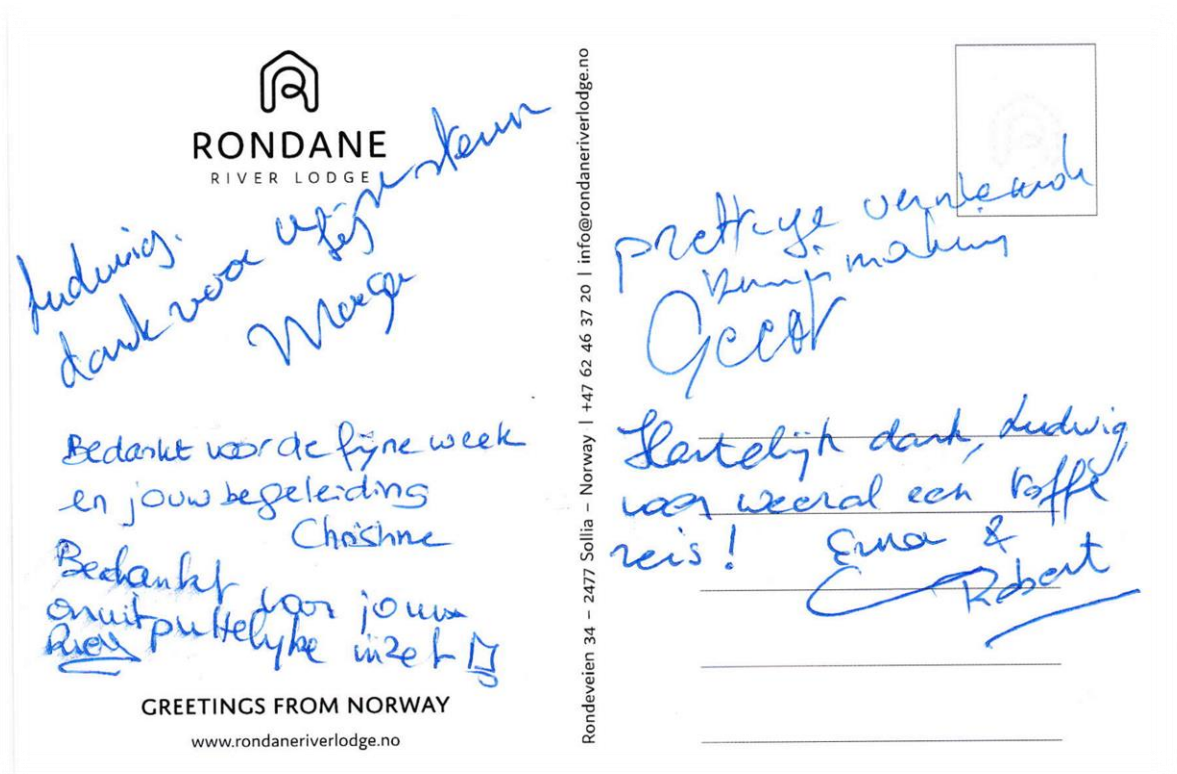 RONDANE
RIVER LODGE
Ludwig.
dank voor
Bedankt voor de fijne week
en jouw begeleiding
Christine
Bedankt voor jouw
onuitputtelijke inzet
GREETINGS FROM NORWAY
www.rondaneriverlodge.no
Rondeveien 34 – 2477 Sollia – Norway | +47 62 46 37 20 | info@rondaneriverlodge.no
prettige
Geert
Hartelijk dank, Ludwig,
voor weeral een toffe
reis!
Erna &
Robert